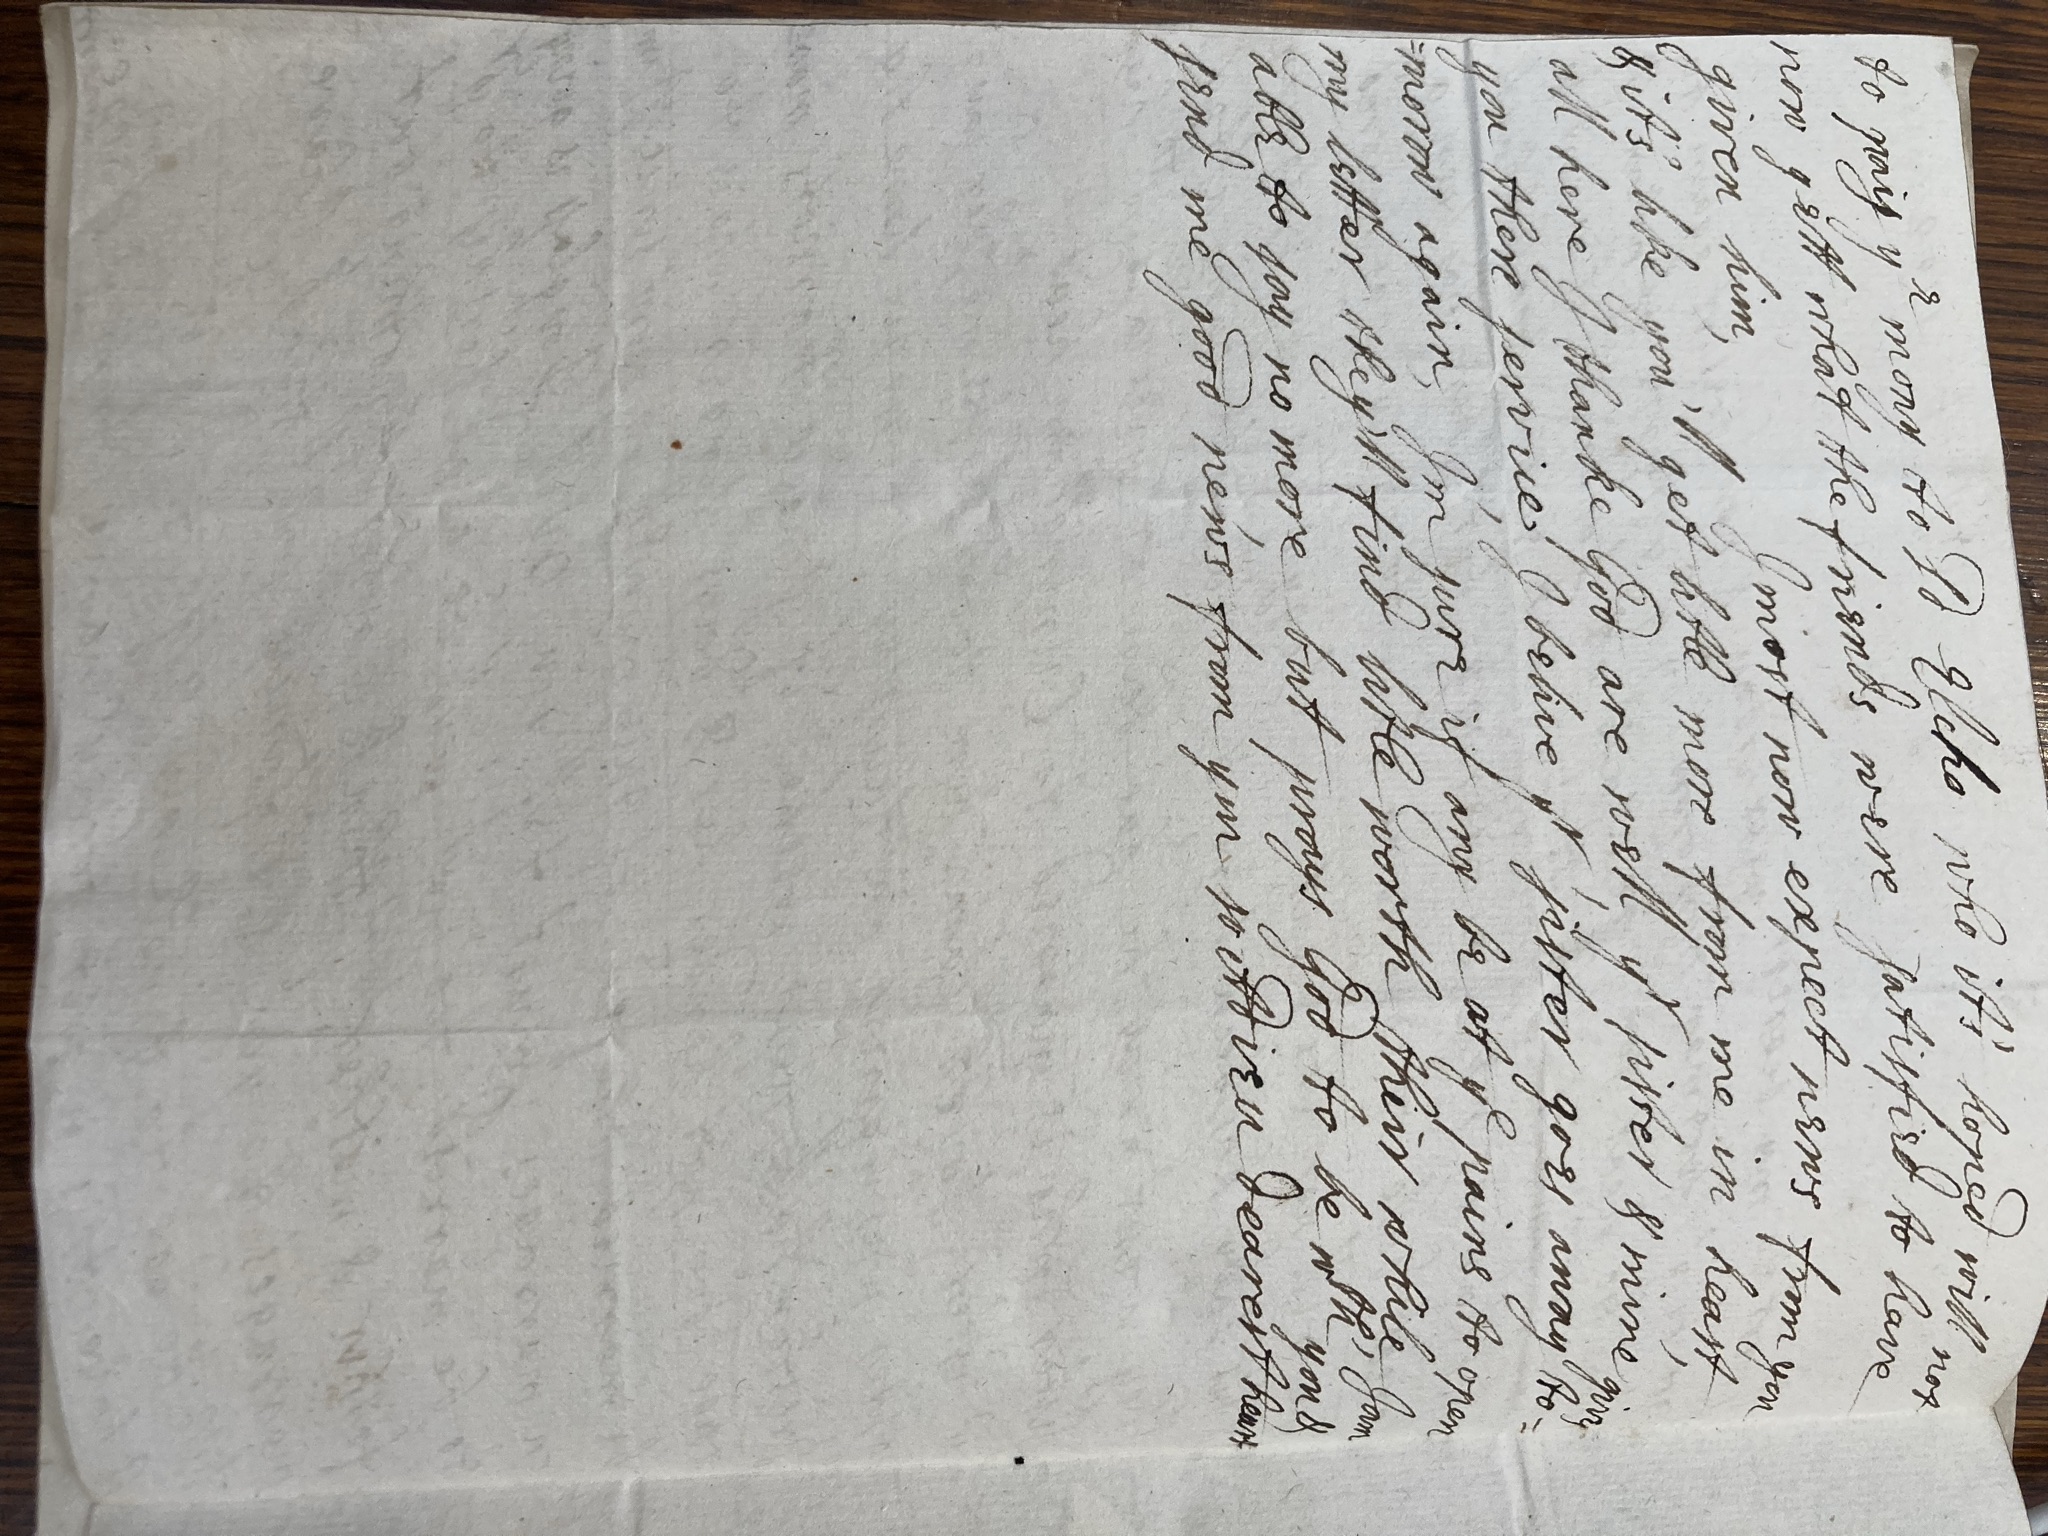 to paiy yᵉ mony to Ld Elcho who it's hoped will not
now gett what the friends were satisfied to have
given him, I most now expect news from you
& it's like you'll get litle more from me in heast,
all here I thanke God are well, yʳ sister & mine give
you there service, I belive yʳ sister goes away to=
=morow again, I'm sure if any be at yᵉ pains to open
my letter they'll find litle worth their while, I am
able to say no more but prays God to be wᵗʰ you &
send me good news from you so Adieu dearest heart